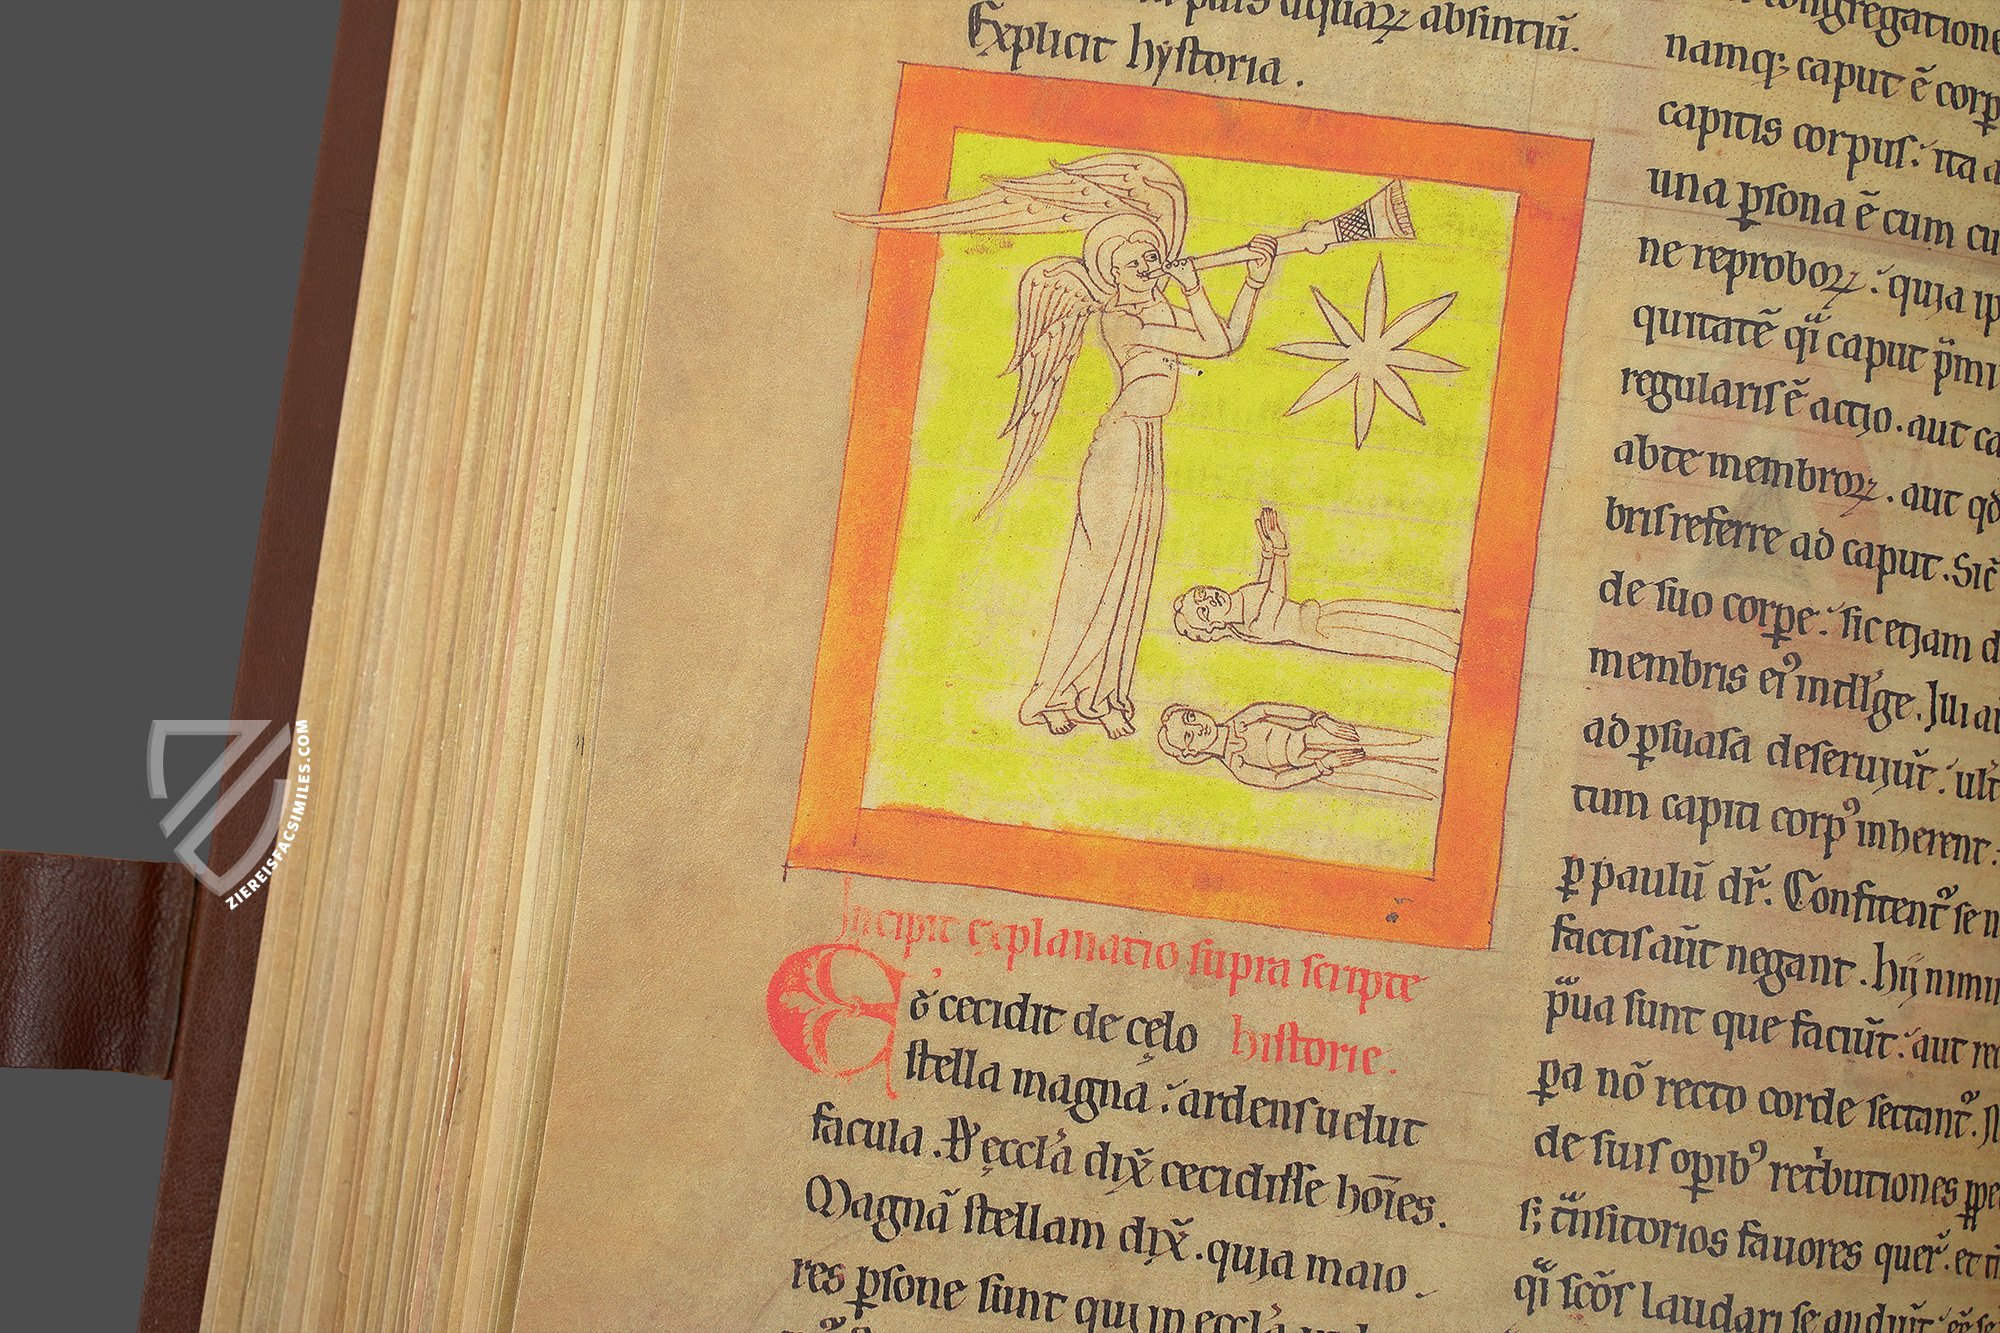 aquaꝝ absintiũ.
Explicit hystoria.
Incipit explanatio supra scripte
Et cecidit de cęlo historie.
stella magna ardens uelut
facula. Ab ęccl'a dix̃ cecidisse hoĩes.
Magnã stellam dix̃. quia maio
res ꝑsone sunt qui in eccl'a
congregatione
namq; caput ẽ corp
capitis corpus: ita a
una ꝑsona ẽ cum
ne reproboꝝ: quia ip
quitatẽ qi caput
regularis ẽ actio. aut ca
abte membroꝝ. aut qd
bris referre ad caput. Sic
de suo corꝑe: sic etiam d
membris ei' intll'ge. Illi
ad ꝑsuasa deseruiũt: ult
tum capiti corp' inherent:
ꝑ paulũ dr̃. Confitent' se n
factis aũt negant. Hij nimi
pua sunt que faciũt: aut rec
ꝑa nõ recto corde sectant'.
de suis oꝑib' ret'butiones ppe
s; t'nsitorios fauores quer̃. et
qi scõs laudari se audiũt
ZIEREISFACSIMILES.COM